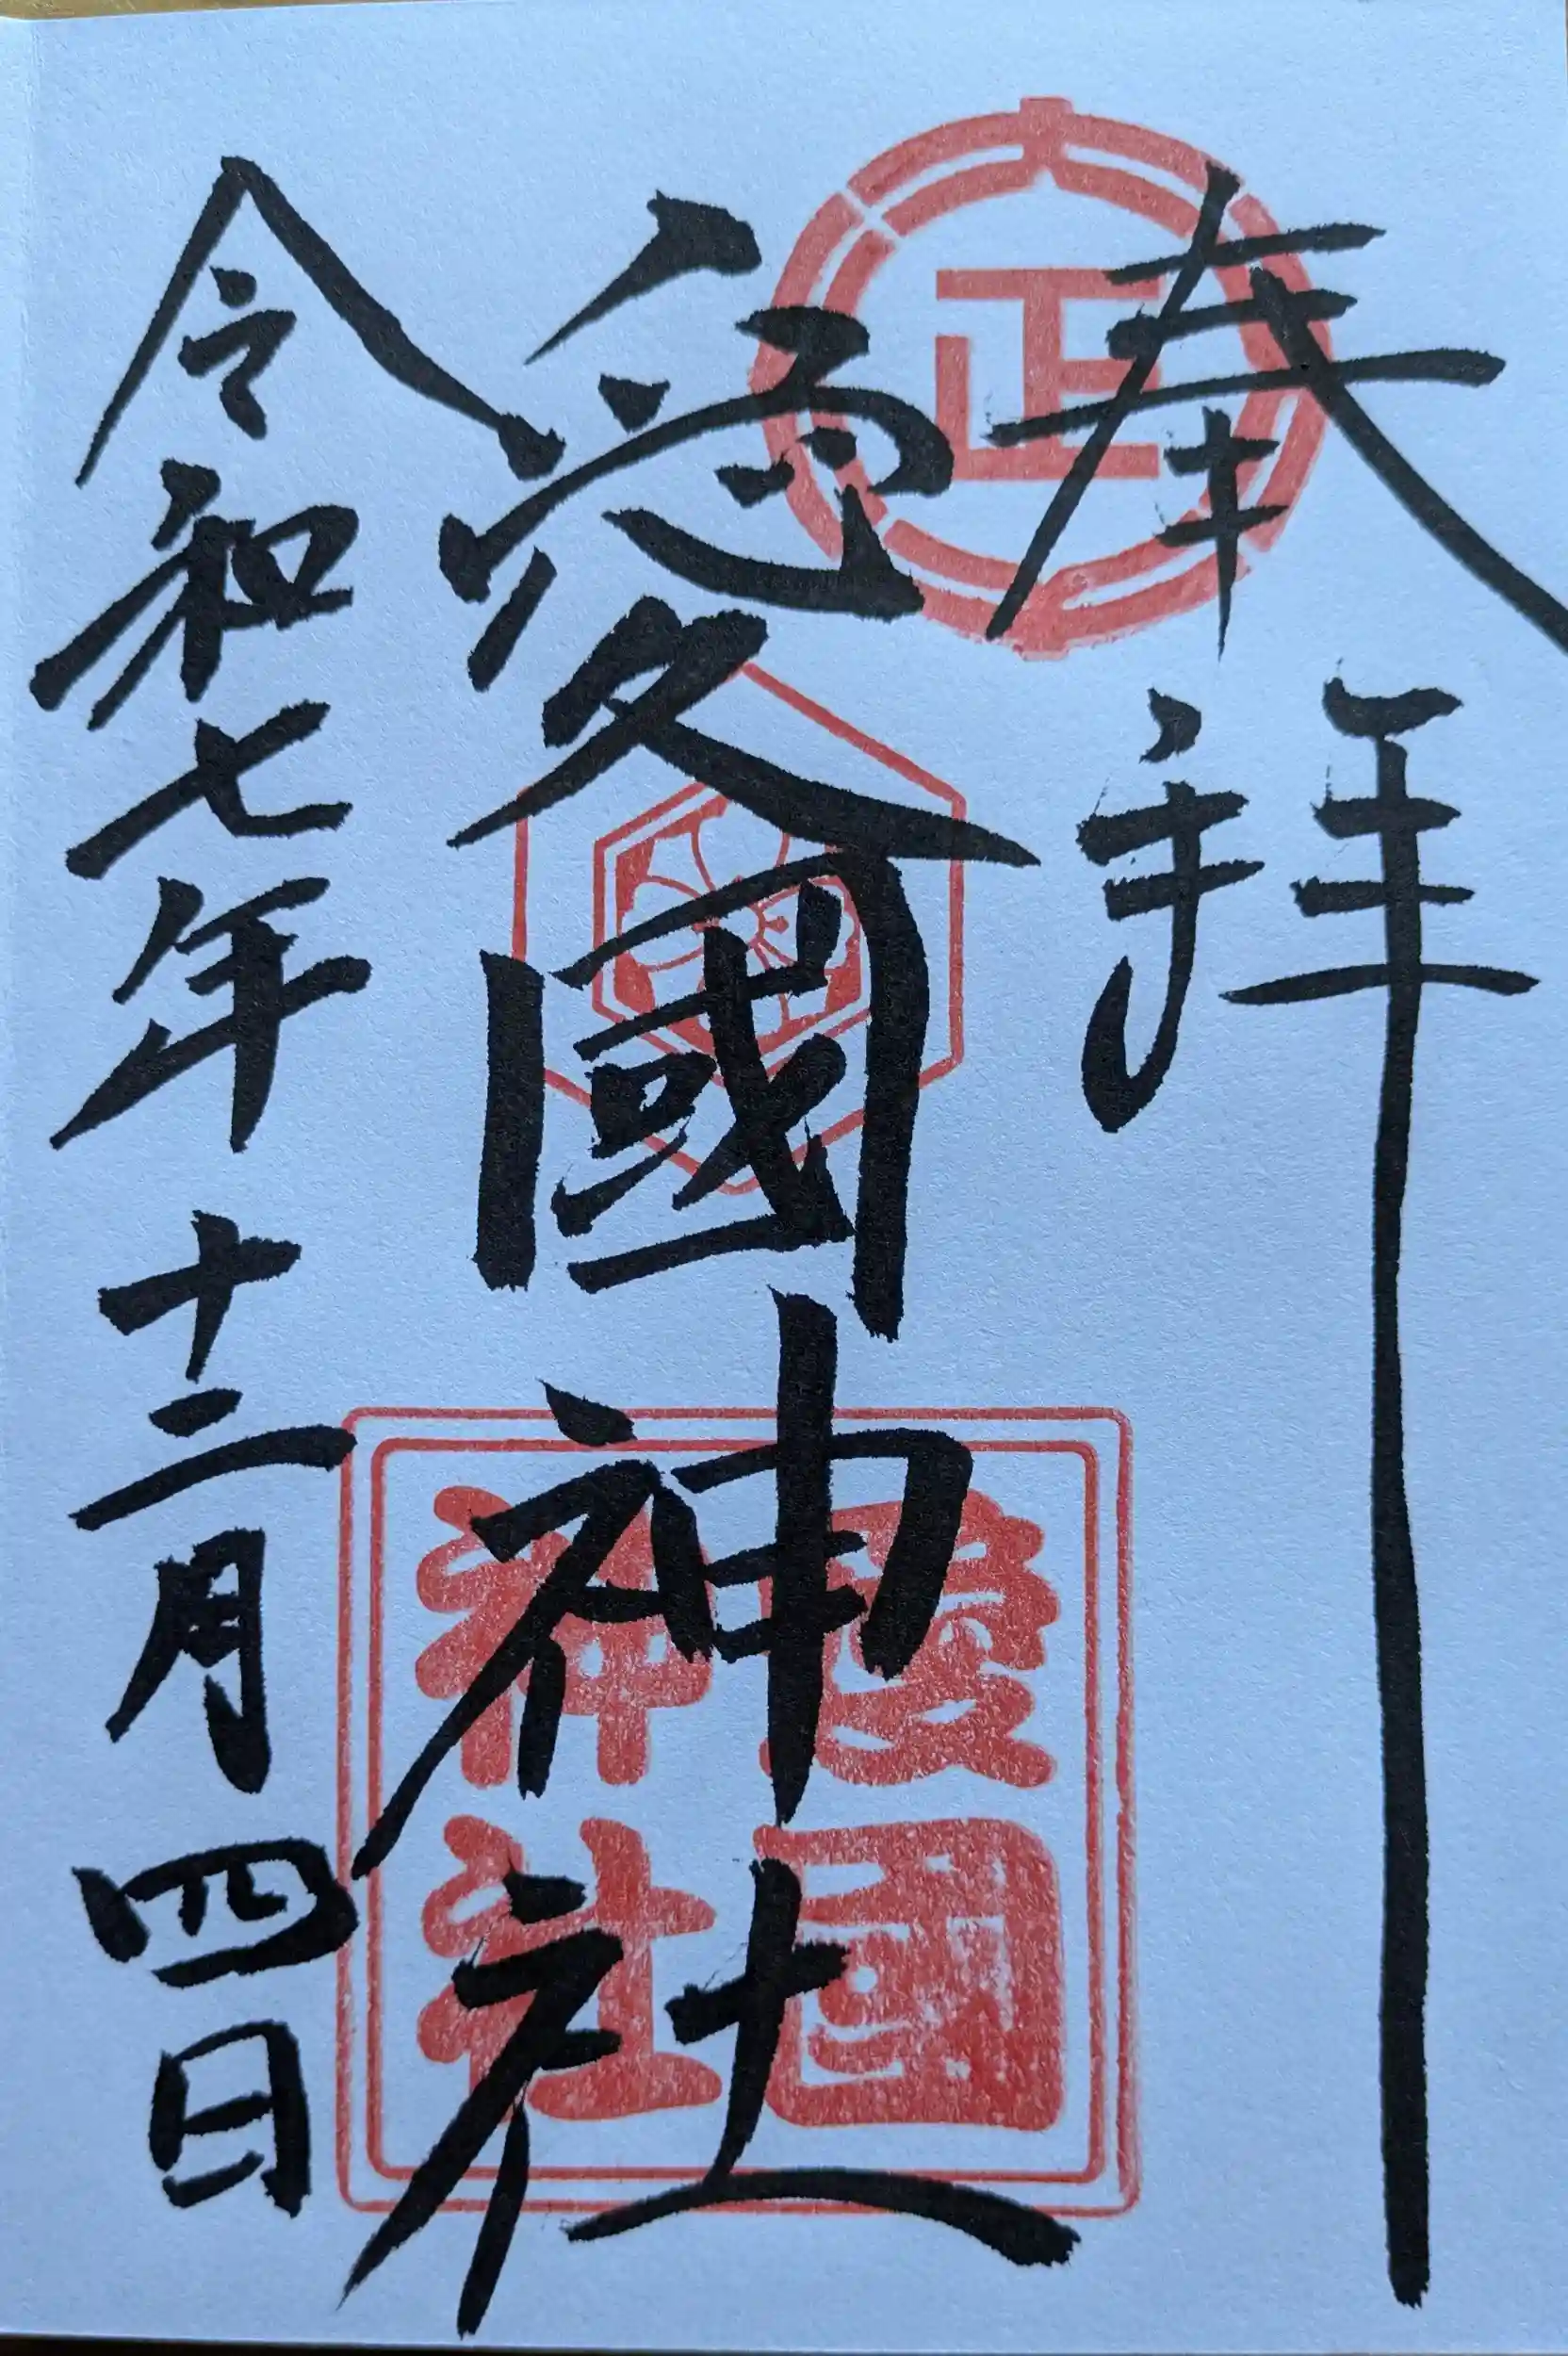 奉拜
正
愛國神社
愛國
神社
令和七年十二月四日